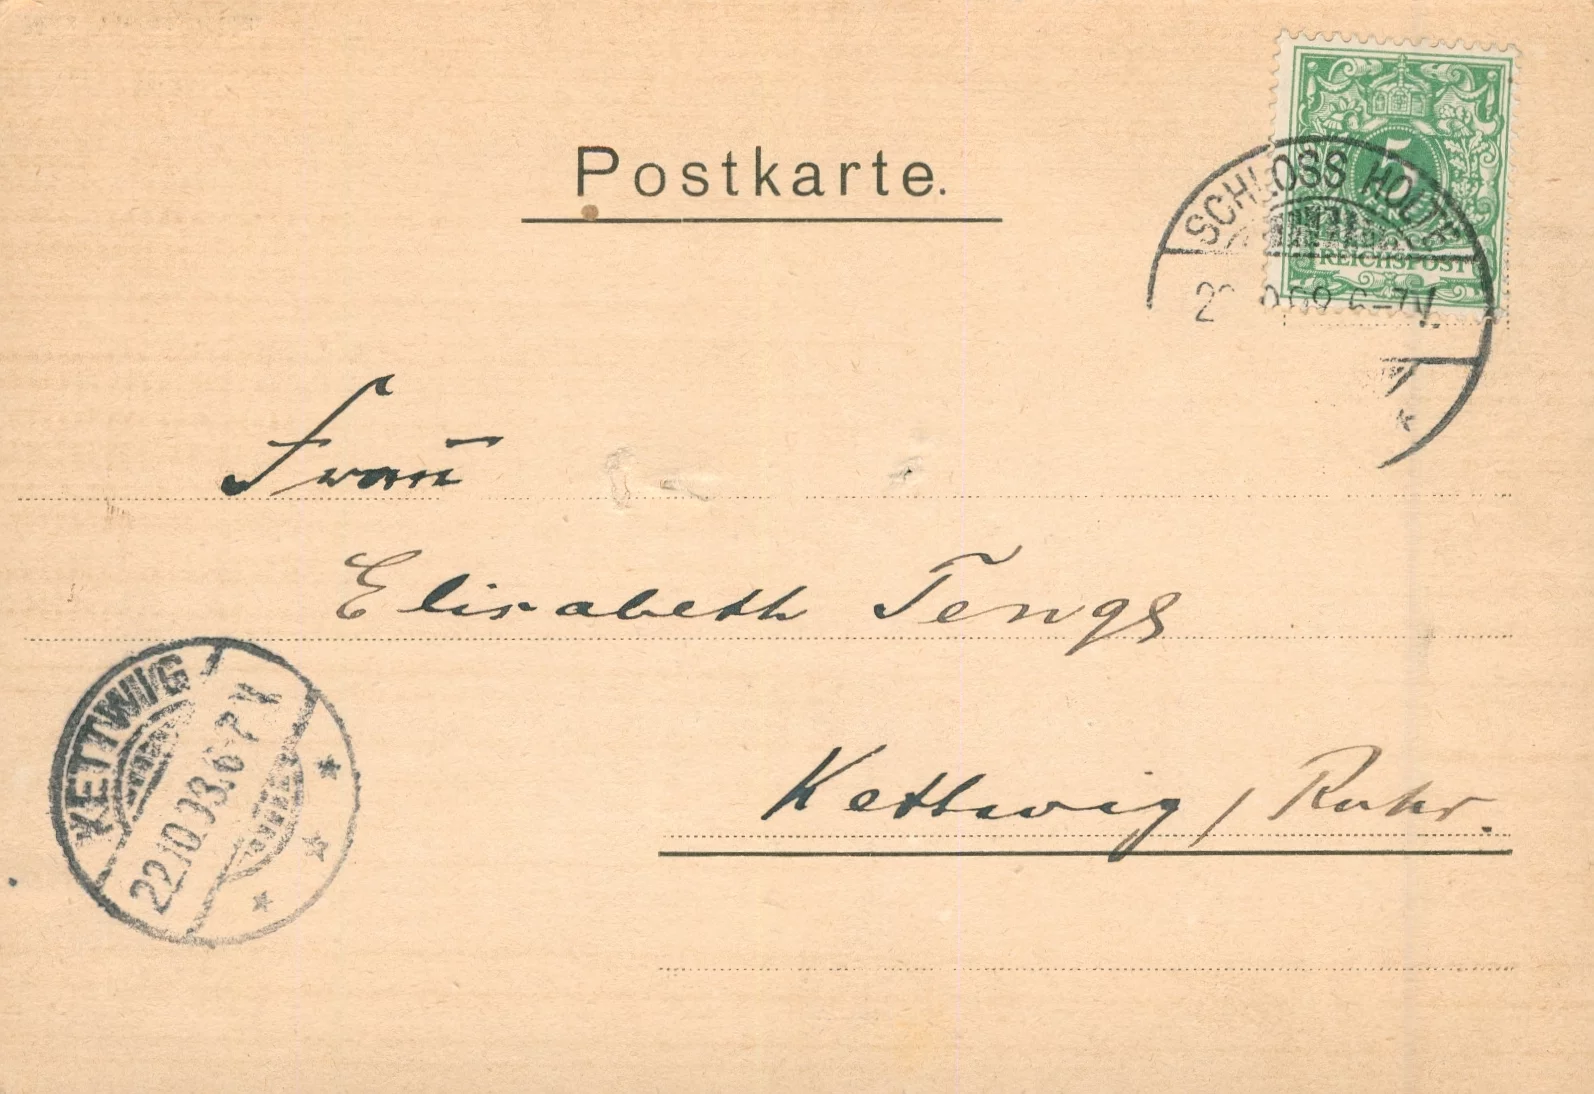 Postkarte.
5
REICHSPOST
SCHLOSS HOLTE
Frau
Elisabeth Tengs
Kettwig / Ruhr.
KETTWIG
22.10.98.6-7V